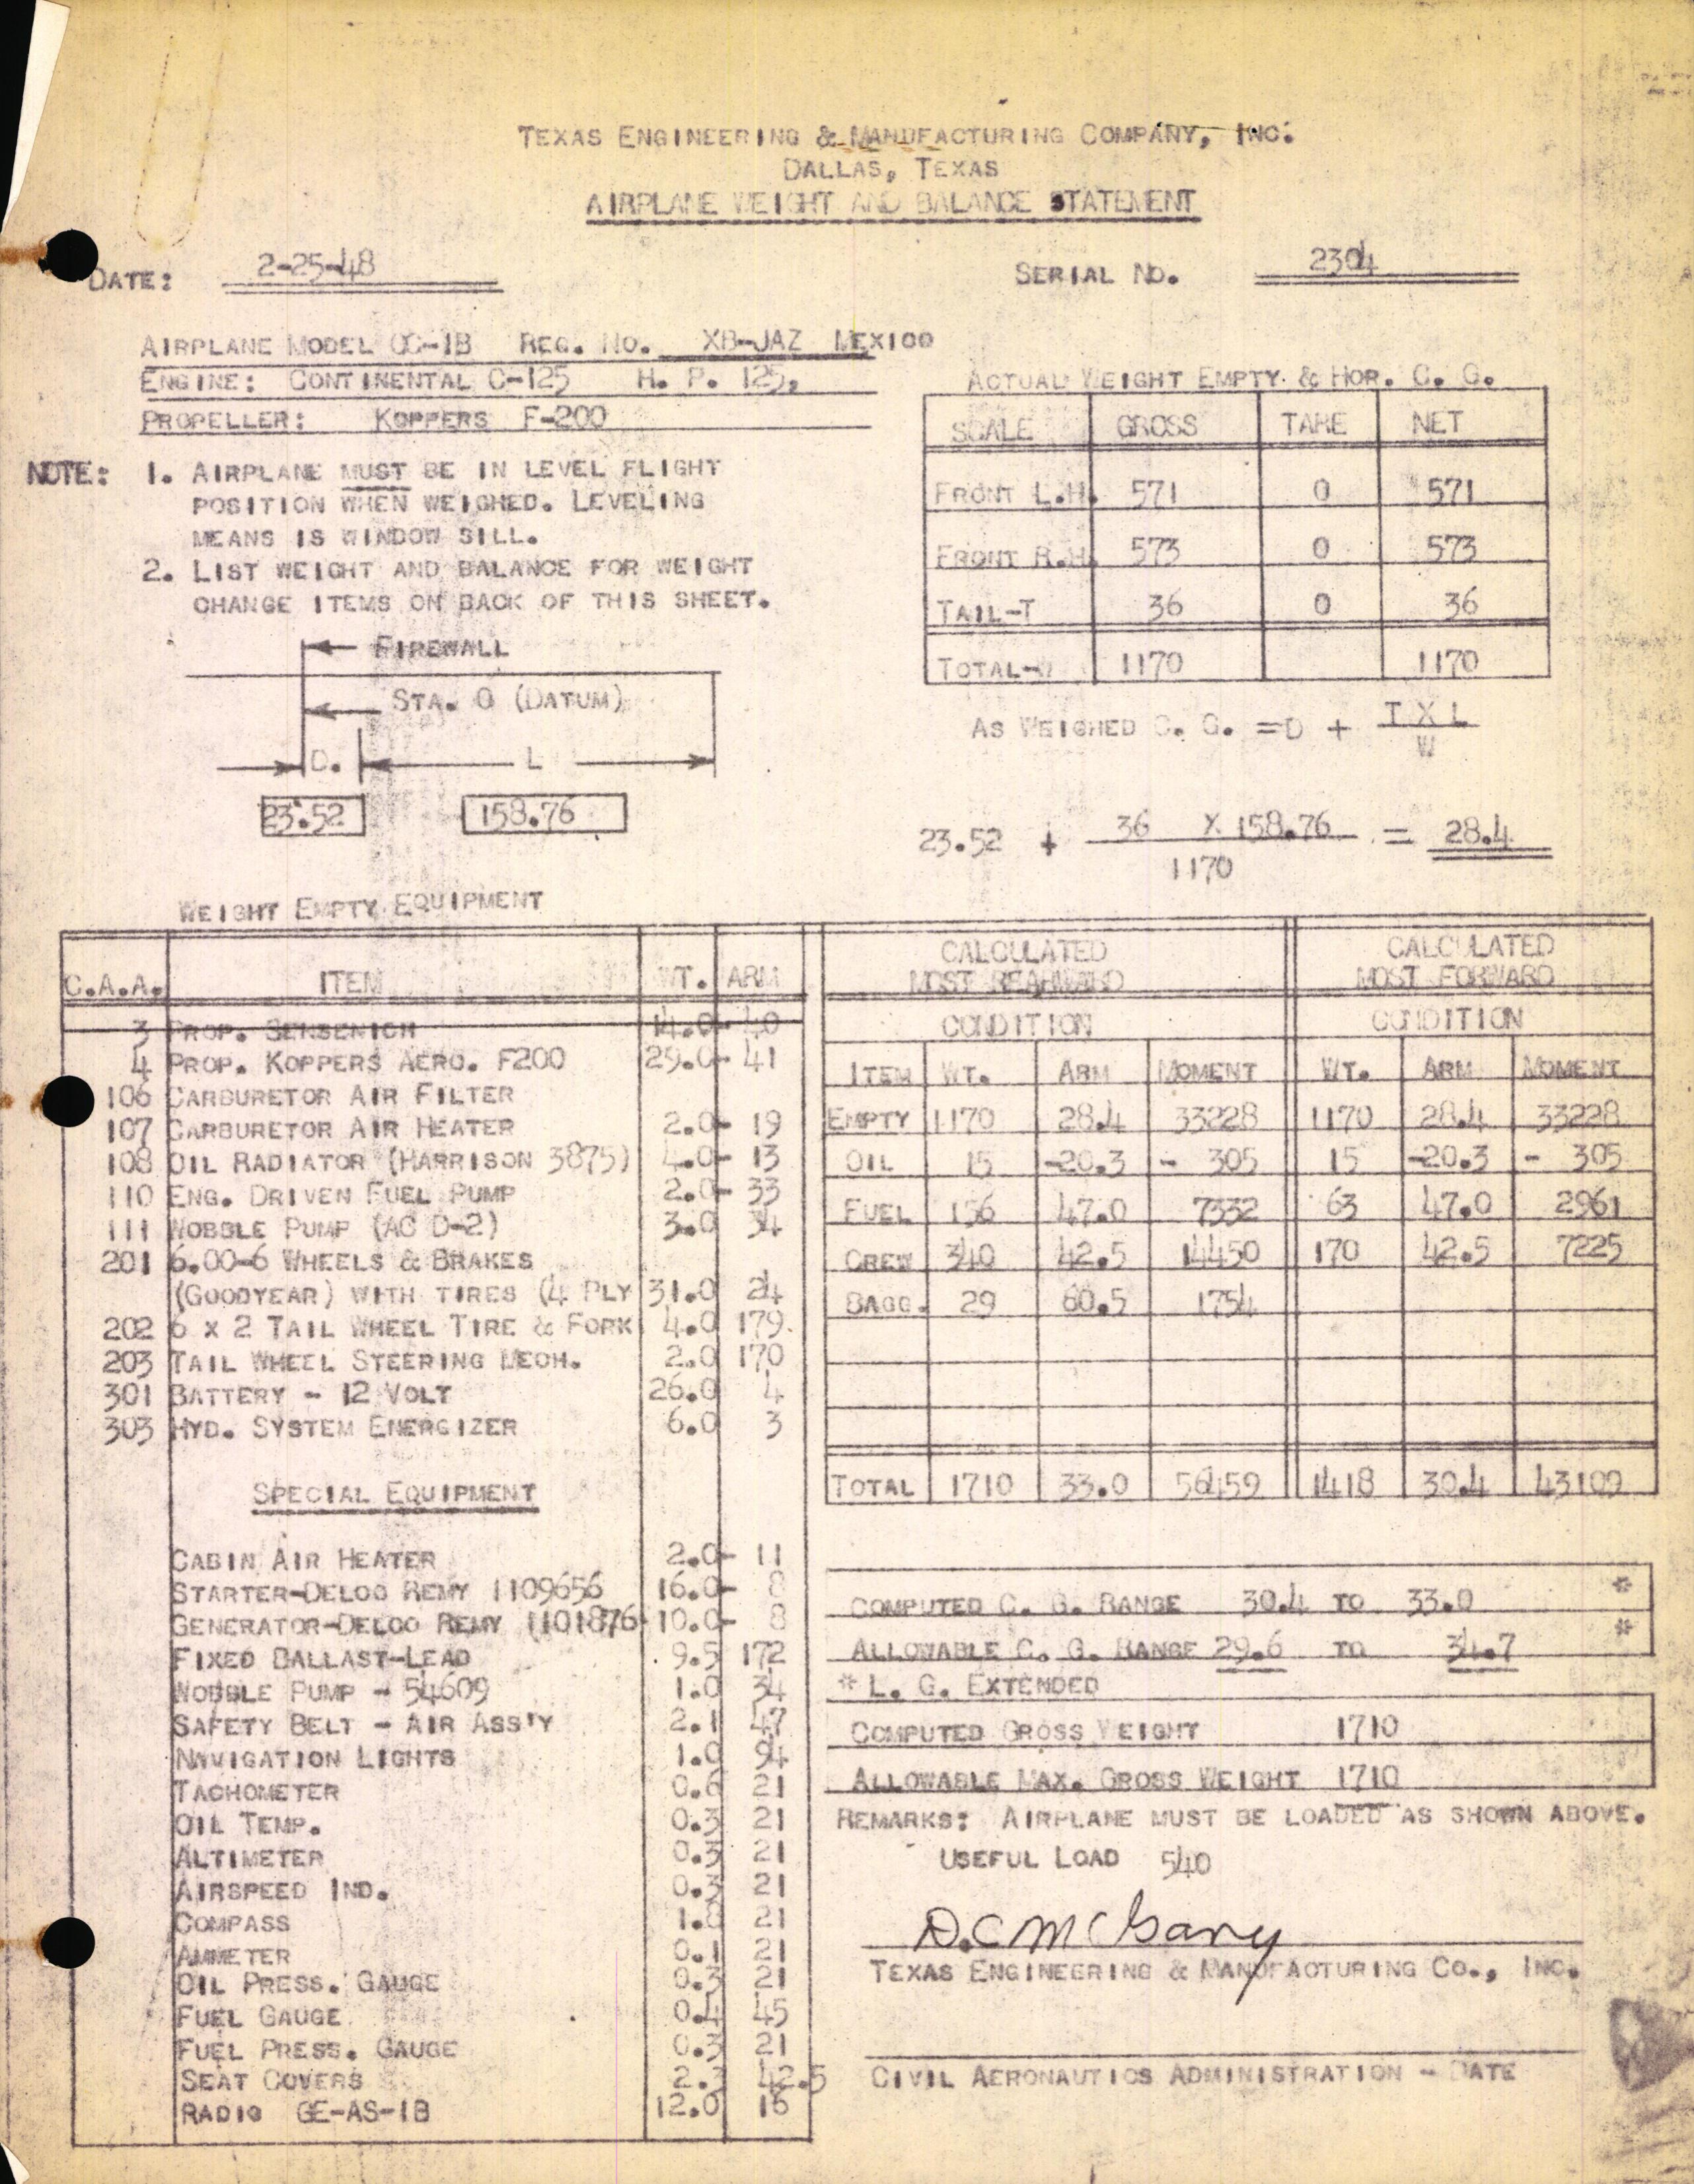 TEXAS ENGINEERING & MANUFACTURING COMPANY, INC.
DALLAS, TEXAS
AIRPLANE WEIGHT AND BALANCE STATEMENT
DATE: 2-25-48 SERIAL NO. 2304
AIRPLANE MODEL GC-1B REG. NO. XB-JAZ MEXICO
ENGINE: CONTINENTAL C-125 H. P. 125,
PROPELLER: KOPPERS F-200
NOTE: 1. AIRPLANE MUST BE IN LEVEL FLIGHT
POSITION WHEN WEIGHED. LEVELING
MEANS IS WINDOW SILL.
2. LIST WEIGHT AND BALANCE FOR WEIGHT
CHANGE ITEMS ON BACK OF THIS SHEET.
FIREWALL
STA. 0 (DATUM)
D. L
23.52 158.76
ACTUAL WEIGHT EMPTY & HOR. C. G.
SCALE GROSS TARE NET
FRONT L.H. 571 0 571
FRONT R.H. 573 0 573
TAIL-T 36 0 36
TOTAL-W 1170 1170
AS WEIGHED C. G. =D + T X L
W
23.52 + 36 X 158.76 = 28.4
1170
WEIGHT EMPTY EQUIPMENT
C.A.A. ITEM WT. ARM
3 PROP. SENSENICH 14.0- 40
4 PROP. KOPPERS AERO. F200 29.0- 41
106 CARBURETOR AIR FILTER
107 CARBURETOR AIR HEATER 2.0- 19
108 OIL RADIATOR (HARRISON 3875) 4.0- 13
110 ENG. DRIVEN FUEL PUMP 2.0- 33
111 WOBBLE PUMP (AC D-2) 3.0 34
201 6.00-6 WHEELS & BRAKES
(GOODYEAR) WITH TIRES (4 PLY 31.0 24
202 6 X 2 TAIL WHEEL TIRE & FORK 4.0 179
203 TAIL WHEEL STEERING MECH. 2.0 170
301 BATTERY - 12 VOLT 26.0 4
303 HYD. SYSTEM ENERGIZER 6.0 3
SPECIAL EQUIPMENT
CABIN AIR HEATER 2.0- 11
STARTER-DELCO REMY 1109656 16.0- 8
GENERATOR-DELCO REMY 1101876 10.0- 8
FIXED BALLAST-LEAD 9.5 172
WOBBLE PUMP - 54609 1.0 34
SAFETY BELT - AIR ASS'Y 2.1 47
NAVIGATION LIGHTS 1.0 94
TACHOMETER 0.6 21
OIL TEMP. 0.3 21
ALTIMETER 0.3 21
AIRSPEED IND. 0.3 21
COMPASS 21
AMMETER 0.1 21
OIL PRESS. GAUGE 0.3 21
FUEL GAUGE 0.4 45
FUEL PRESS. GAUGE 0.3 21
SEAT COVERS 42.5
RADIO GE-AS-1B 12.0 16
CALCULATED CALCULATED
MOST REARWARD MOST FORWARD
CONDITION CONDITION
ITEM WT. ARM MOMENT WT. ARM MOMENT
EMPTY 1170 28.4 33228 1170 28.4 33228
OIL 15 -20.3 - 305 15 -20.3 - 305
FUEL 156 47.0 7332 63 47.0 2961
CREW 340 42.5 14450 170 42.5 7225
BAGG. 29 60.5 1754
TOTAL 1710 33.0 56459 1418 30.4 43109
COMPUTED C. G. RANGE 30.4 TO 33.0 *
ALLOWABLE C. G. RANGE 29.6 TO 34.7 *
* L. G. EXTENDED
COMPUTED GROSS WEIGHT 1710
ALLOWABLE MAX. GROSS WEIGHT 1710
REMARKS: AIRPLANE MUST BE LOADED AS SHOWN ABOVE.
USEFUL LOAD 540
D.C McGary
TEXAS ENGINEERING & MANUFACTURING CO., INC.
CIVIL AERONAUTICS ADMINISTRATION - DATE